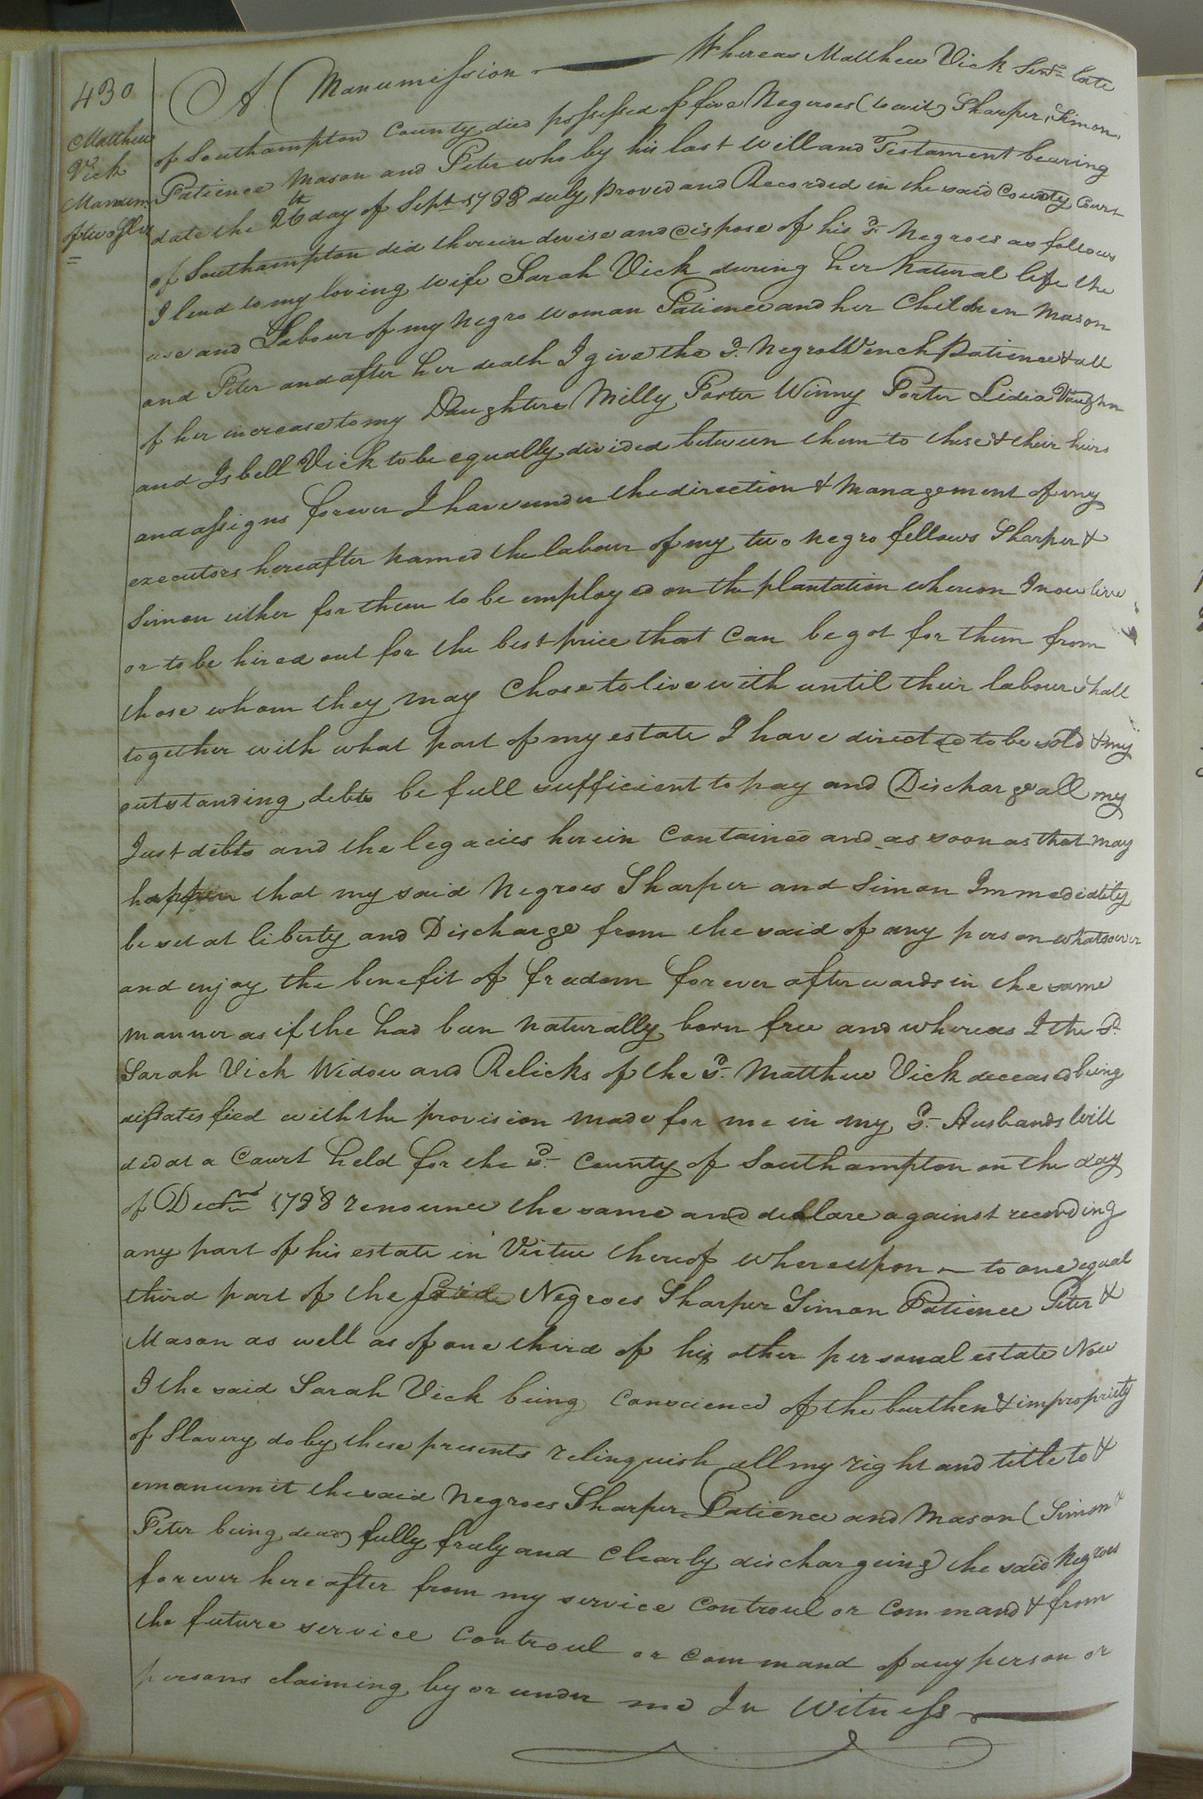 430
Matthew
Vick
Manum
of two Slaves
A Manumission Whereas Matthew Vick Senr. late
of Southampton County died possessed of five Negroes (to wit) Sharper, Simon,
Patience Mason and Peter who by his last Will and Testament bearing
date the 26th day of Sept. 1788 duly proved and Recorded in the said County Court
of Southampton did therein devise and dispose of his sd. Negroes as follows
I lend to my loving wife Sarah Vick during her natural life the
use and Labour of my Negro woman Patience and her Children Mason
and Peter and after her death I give the sd. Negro Wench Patience & all
of her increase to my Daughters Milly Porter Winny Porter Lidia Vaughn
and Isbell Vick to be equally devided between them to these & their heirs
and assigns forever I have under the direction & Management of my
executors hereafter named the labour of my two negro fellows Sharper &
Simon either for them to be employed on the plantation whereon I now live
or to be hired out for the best price that Can be got for them from
those whom they may Chose to live with until their labour shall
together with what part of my estate I have directed to be sold & my
outstanding debts be full sufficient to pay and Discharge all my
Just debts and the legacies herein Contained and as soon as that may
happen that my said Negroes Sharper and Simon Immediatity
be set at liberty and Discharge from the said of any person whatsoever
and enjoy the benefit of freadom forever afterwards in the same
manner as if the had been naturally born free and whereas I the sd.
Sarah Vick Widow and Relicks of the sd. Matthew Vick deceasd being
disSatesfied with the provision made for me in my sd. Husbands Will
did at a Court held for the sd. County of Southampton on the day
of Decmr 1788 renounce the same and declare against recording
any part of his estate in Virtue thereof whereupon to one equal
third part of the said Negroes Sharper Simon Patience Peter &
Mason as well as of one third of his other personal estate Now
I the said Sarah Vick being Conscienced of the burthen & impropriety
of Slavery do by these presents relinquish all my right and title to &
emanumit the said Negroes Sharper Patience and Mason (Simon &
Peter being dead) fully fruly and Clearly dischargeing the said Negroes
forever hereafter from my service Controul or Command & from
the future service Controul or Command of any person or
persons claiming by or under me In Witness